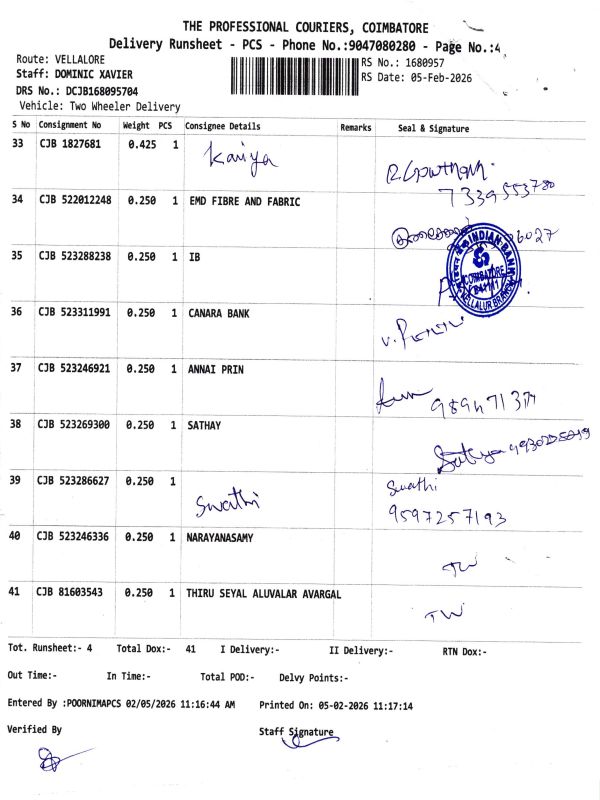 THE PROFESSIONAL COURIERS, COIMBATORE
Delivery Runsheet - PCS - Phone No.:9047080280 - Page No.:4
Route: VELLALORE
RS No.: 1680957
Staff: DOMINIC XAVIER
RS Date: 05-Feb-2026
DRS No.: DCJB168095704
Vehicle: Two Wheeler Delivery
S No Consignment No Weight PCS Consignee Details Remarks Seal & Signature
33 CJB 1827681 0.425 1 Kaviya
R. Gowtham
7339553780
34 CJB 522012248 0.250 1 EMD FIBRE AND FABRIC
35 CJB 523288238 0.250 1 IB
INDIAN BANK
COIMBATORE
641111
VELLALUR BRANCH
36 CJB 523311991 0.250 1 CANARA BANK
37 CJB 523246921 0.250 1 ANNAI PRIN
38 CJB 523269300 0.250 1 SATHAY
Sathya
39 CJB 523286627 0.250 1 Swathi
Swathi
9597257193
40 CJB 523246336 0.250 1 NARAYANASAMY
TW
41 CJB 81603543 0.250 1 THIRU SEYAL ALUVALAR AVARGAL
TW
Tot. Runsheet:- 4 Total Dox:- 41 I Delivery:- II Delivery:- RTN Dox:-
Out Time:- In Time:- Total POD:- Delvy Points:-
Entered By :POORNIMAPCS 02/05/2026 11:16:44 AM Printed On: 05-02-2026 11:17:14
Verified By Staff Signature